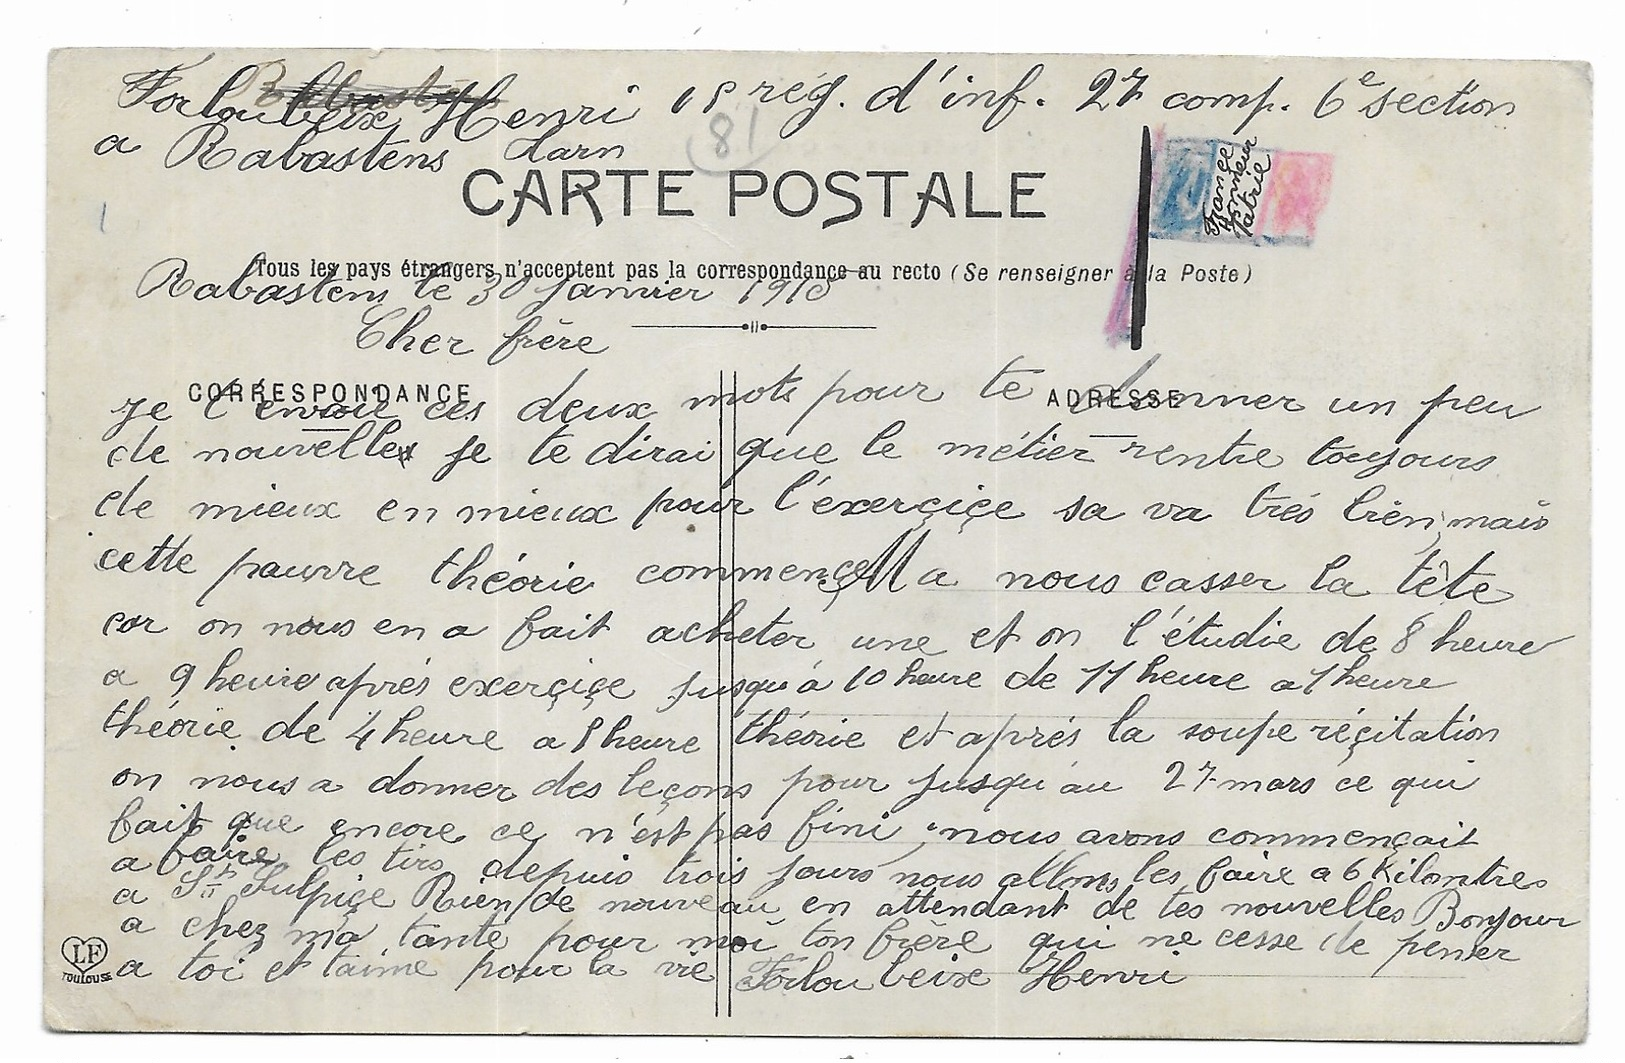 Forloubeix Henri 18 rég. d'inf. 27 comp. 6e section
a Rabastens tarn
81
CARTE POSTALE
France
honneur
Patrie
Tous les pays étrangers n'acceptent pas la correspondance au recto (Se renseigner à la Poste)
Rabastens le 30 Janvier 1918
Cher frère
CORRESPONDANCE
ADRESSE
Je t'envoie ces deux mots pour te donner un peu
de nouvelles je te dirai que le métier rentre toujours
de mieux en mieux pour l'exerçiçe sa va trés bien, mais
cette pauvre théorie commençe a nous casser la tête
car on nous en a fait acheter une et on l'étudie de 8 heure
a 9 heure aprés exerçiçe jusqu'à 10 heure de 11 heure a 1 heure
théorie de 4 heure a 8 heure théorie et aprés la soupe réçitation
on nous a donner des leçons pour jusqu'au 27 mars ce qui
fait que encore ce n'est pas fini, nous avons commençait
a faire les tirs depuis trois jours nous allons les faire a 6 Kilomtres
a St Sulpiçe Rien de nouveau en attendant de tes nouvelles Bonjour
a chez ma tante pour moi ton frère qui ne cesse de penser
a toi et t'aime pour la vie Forloubeix Henri
LF
TOULOUSE